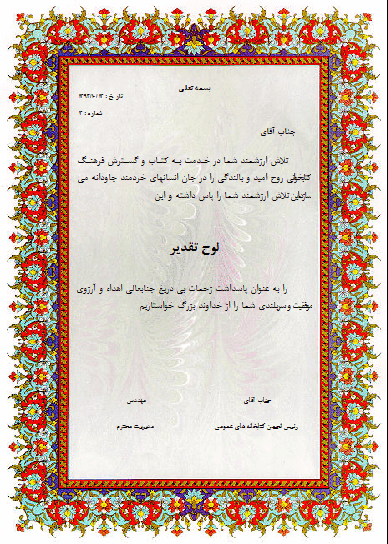 بسمه تعالی
تاریخ :
شماره : ۲
جناب آقای
تلاش ارزشمند شما در خدمت به کتاب و گسترش فرهنگ
کتابخوانی روح امید و بالندگی را در جان انسانهای خردمند جاودانه می
سازد تلاش ارزشمند شما را پاس داشته و این
لوح تقدیر
را به عنوان پاسداشت زحمات بی دریغ جنابعالی اهداء و آرزوی
موفقیت و سربلندی شما را از خداوند بزرگ خواستاریم
جناب آقای
مهندس
رئیس انجمن کتابخانه های عمومی
مدیریت محترم